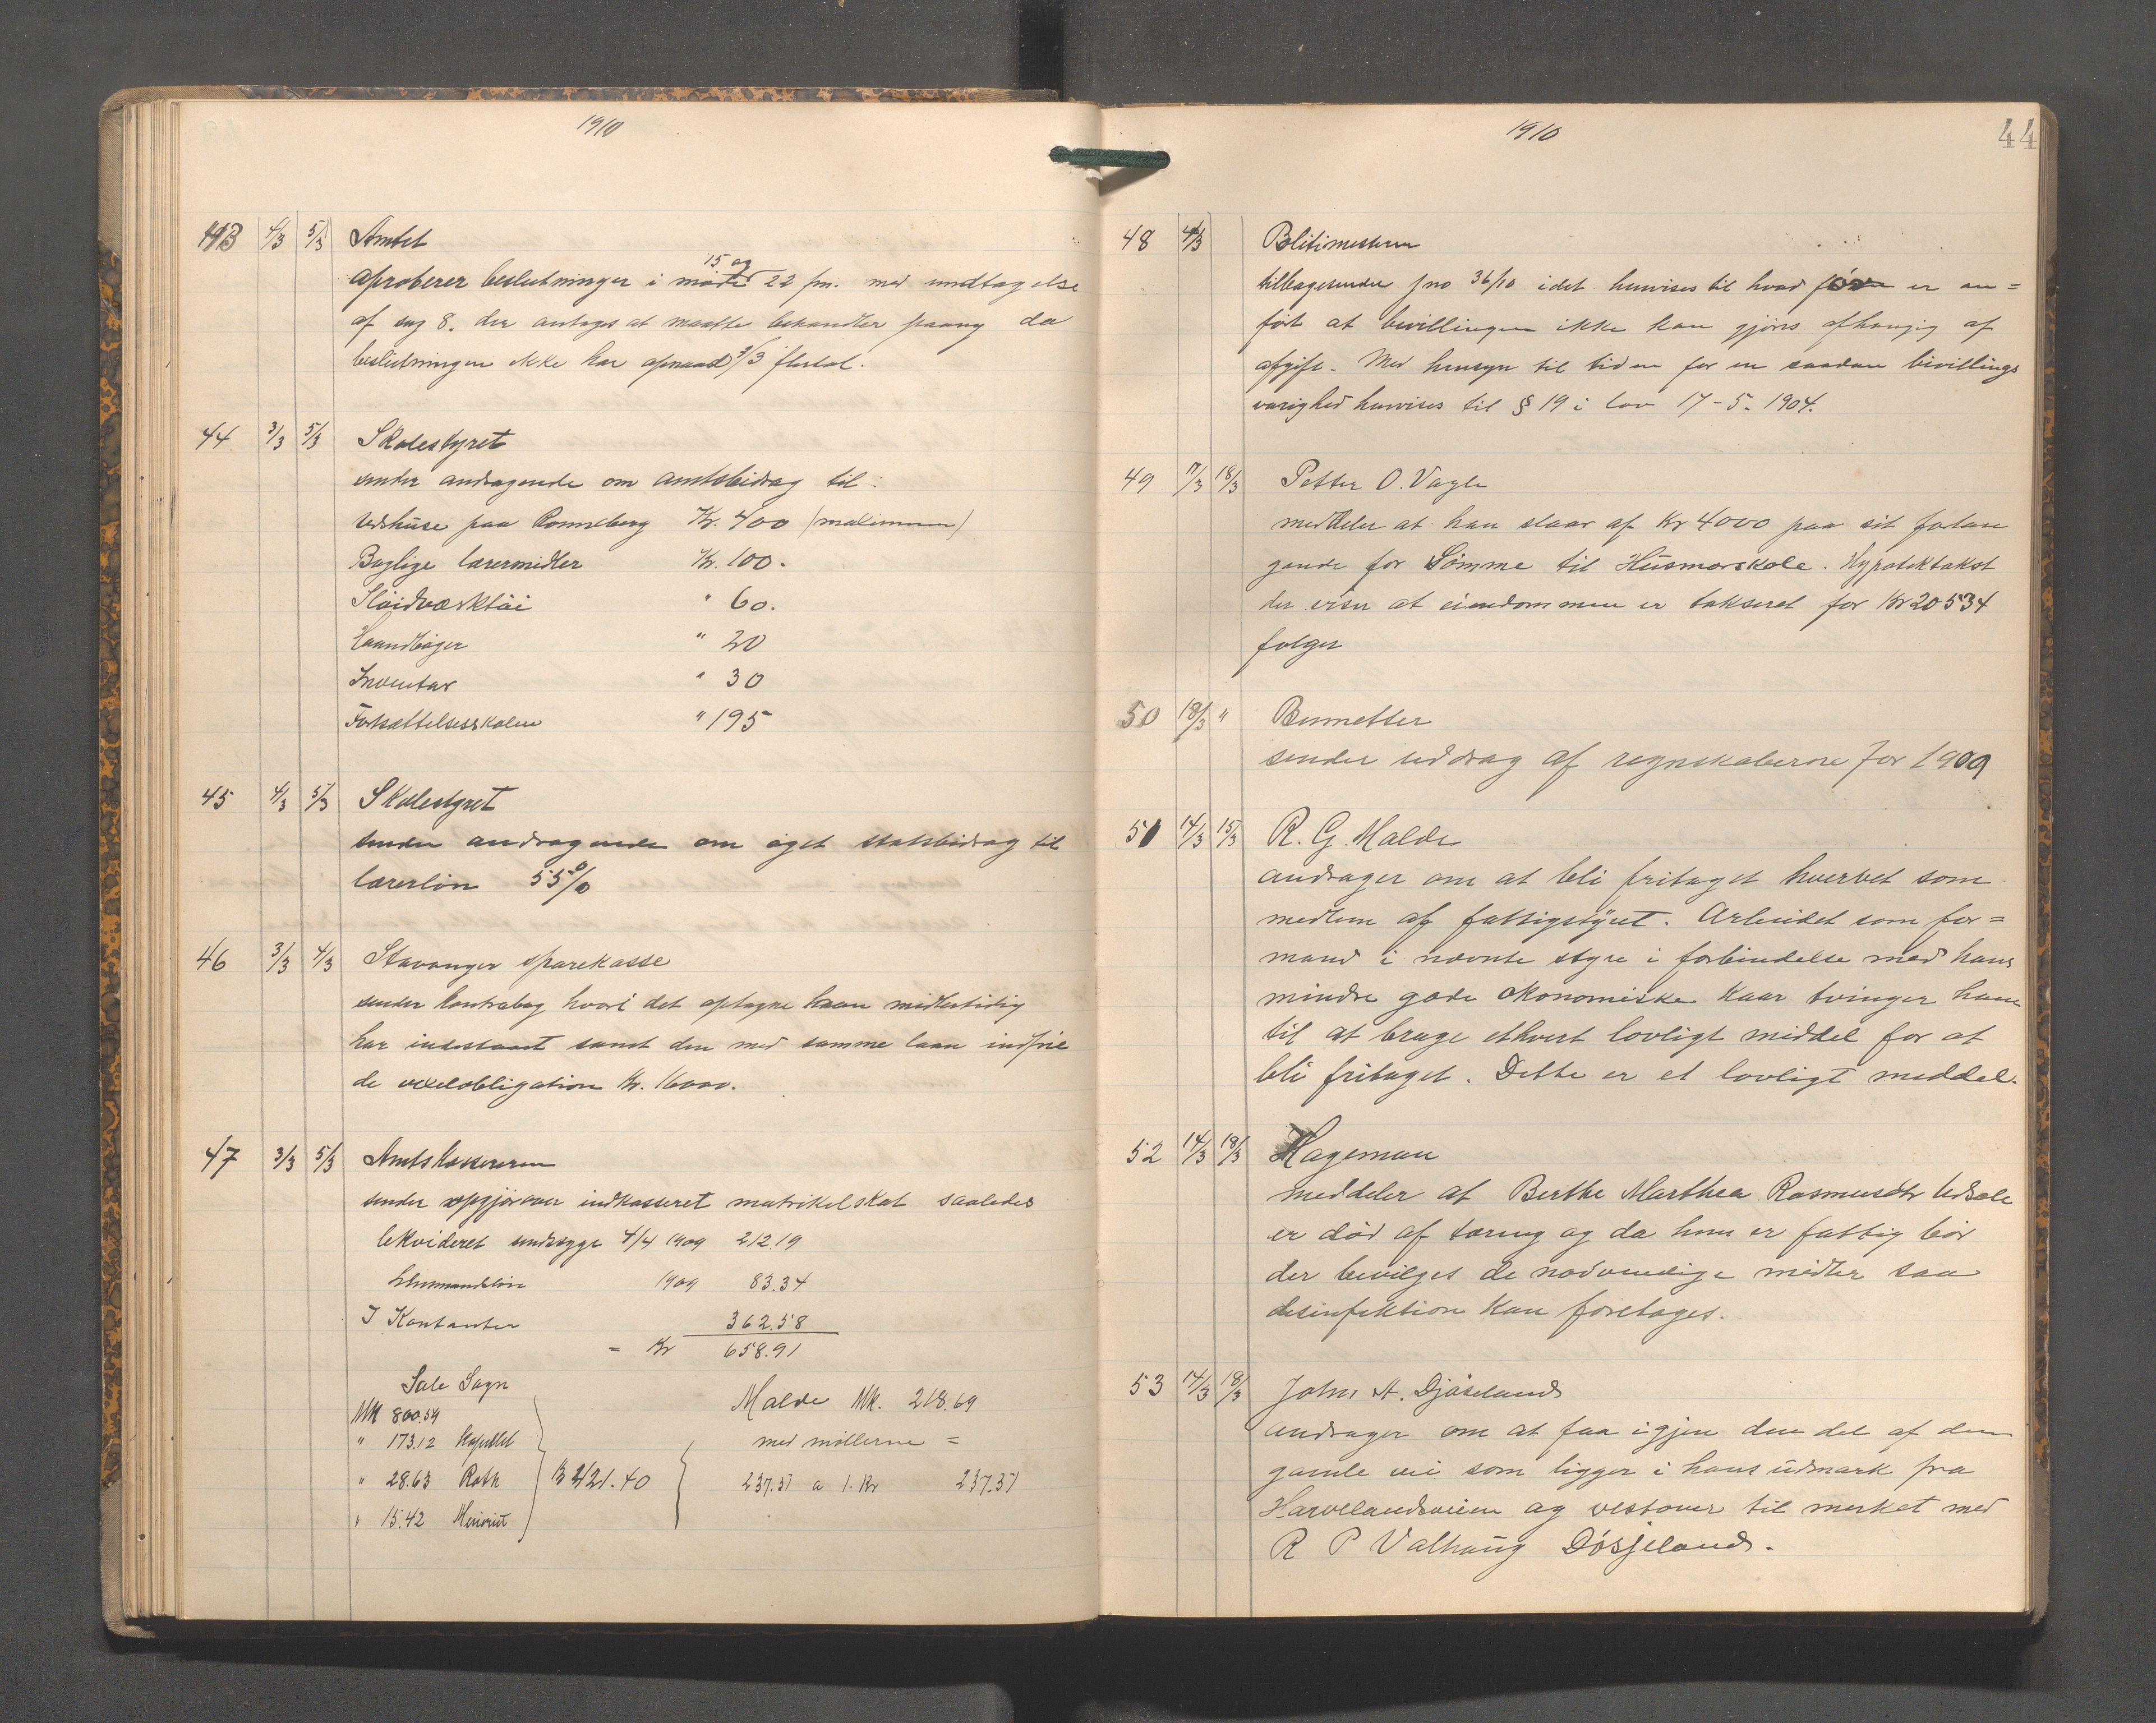 1910
43 4/3 5/3 Amtet
aproberer beslutninger i møde 15 og 22 fm. med undtagelse
af sag 8. der antages at maatte behandles paany da
beslutningen ikke har opnaad 2/3 flertal.
44 3/3 5/3 Skolestyret
sender andragende om amtsbidrag til:
Vedhuse paa Ronneberg Kr. 400 (maximum)
Boglige læremidler Kr. 100.
Slöidværktöi " 60.
Haandböger " 20
Inventar " 30
Fortsættelsesskolen " 195
45 4/3 5/3 Skolestyret
sender andragende om öget statsbidrag til
lærerlön 55%
46 3/3 4/3 Stavanger sparekasse
sender kontrabog hvori det optagne laan midlertidig
har indestaaet samt den med samme laan indfrie
de vexelobligation Kr. 16000.
47 3/3 5/3 Amtskassereren
sender opgjör over indkasseret matrikelskat saaledes
likvideret sindssyge 4/4 1909 212.19
1909 83.34
I Kontanter 362.58
= Kr 658.91
Sole Sogn
Mk 800.54
" 173.12
" 28.63
" 15.42
Kr 421.40
Malde Mk. 218.69
med möllerne =
237.51 a 1. Kr 237.51
1910
44
48 4/3
tilbagesender jno 36/10 idet henvises til hvad før er an=
fört at bevillingen ikke kan gjöres afhængig af
afgift. Med hensyn til tiden for en saadan bevillings
varighed henvises til § 19 i lov 17-5-1904.
49 17/3 18/3 Petter O. Vagle
meddeler at han slaar af Kr 4000 paa sit forlan
gende for Sömme til Husmorskole. Hypotektakst
der viser at eiendommen er takseret for Kr 20534
følger
50 18/3 " Bennetter
sender uddrag af regnskaberne for 1909
51 14/3 15/3 R. G. Malde
andrager om at bli fritaget hvervet som
medlem af fattigstyret. Arbeidet som for=
mand i nævnte styre i forbindelse med hans
mindre gode ökonomiske kaar tvinger ham
til at bruge ethvert lovligt middel for at
bli fritaget. Dette er et lovligt meddel.
52 14/3 18/3 Hageman
meddeler at Berthe Marthea Rasmusdtr
er död af tæring og da hun er fattig bör
der bevilges de nødvendige midler saa
desinfektion kan foretages.
53 14/3 18/3 John A. Djöseland
andrager om at faa igjen den del af den
gamle vei som ligger i hans udmark fra
Harvelandsveien og vestover til merket med
R P Valhaug Dösjeland.